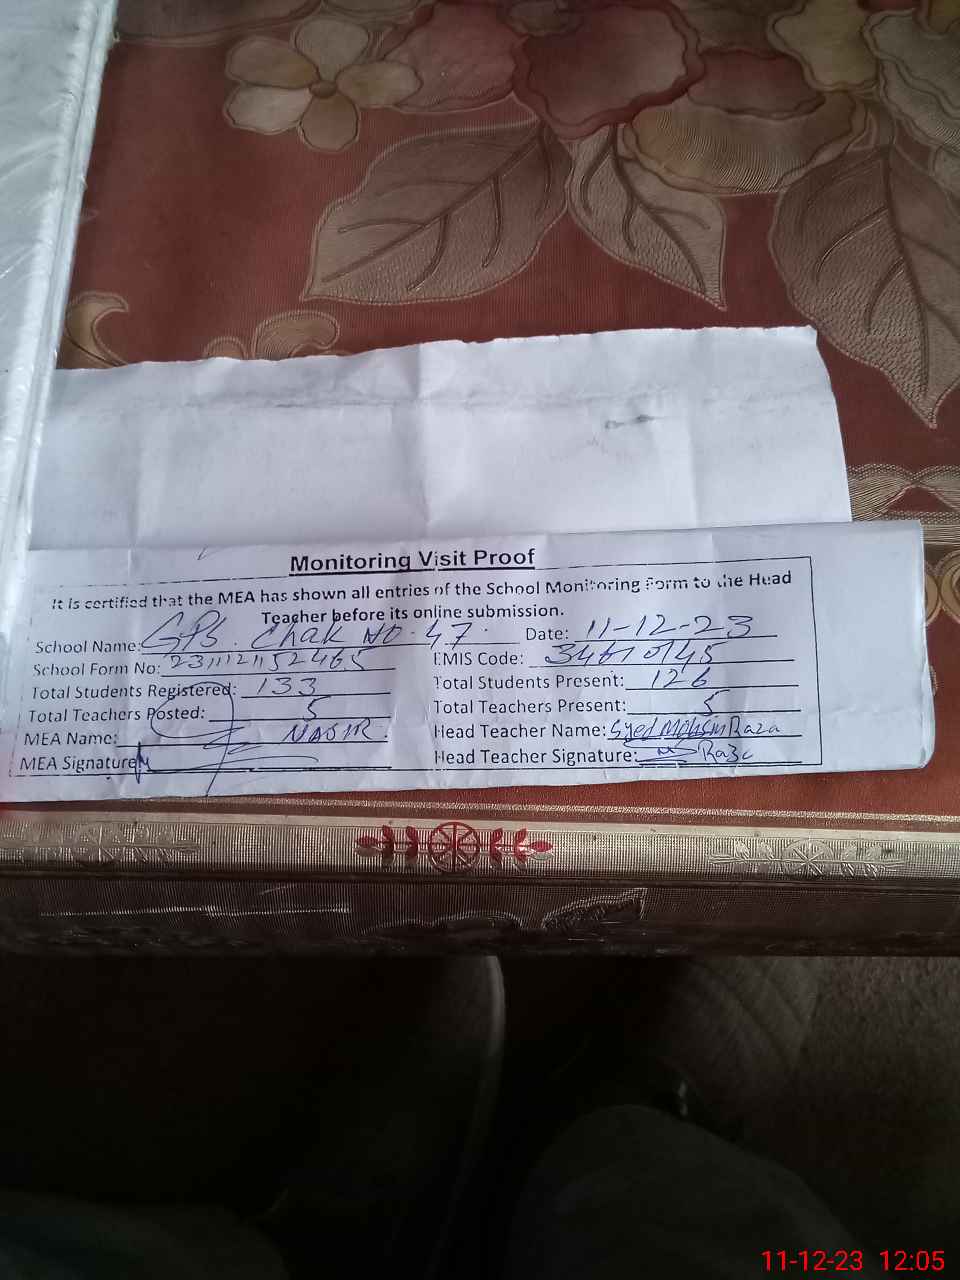 Monitoring Visit Proof
It is certified that the MEA has shown all entries of the School Monitoring Form to the Head
Teacher before its online submission.
School Name: GPS. Chak NO. 47. Date: 11-12-23
School Form No: EMIS Code: 34610145
Total Students Registered: 133 Total Students Present: 126
Total Teachers Posted: 5 Total Teachers Present: 5
MEA Name: NASIR. Head Teacher Name: Syed Mohsin Raza
MEA Signature Head Teacher Signature: Raza
11-12-23 12:05